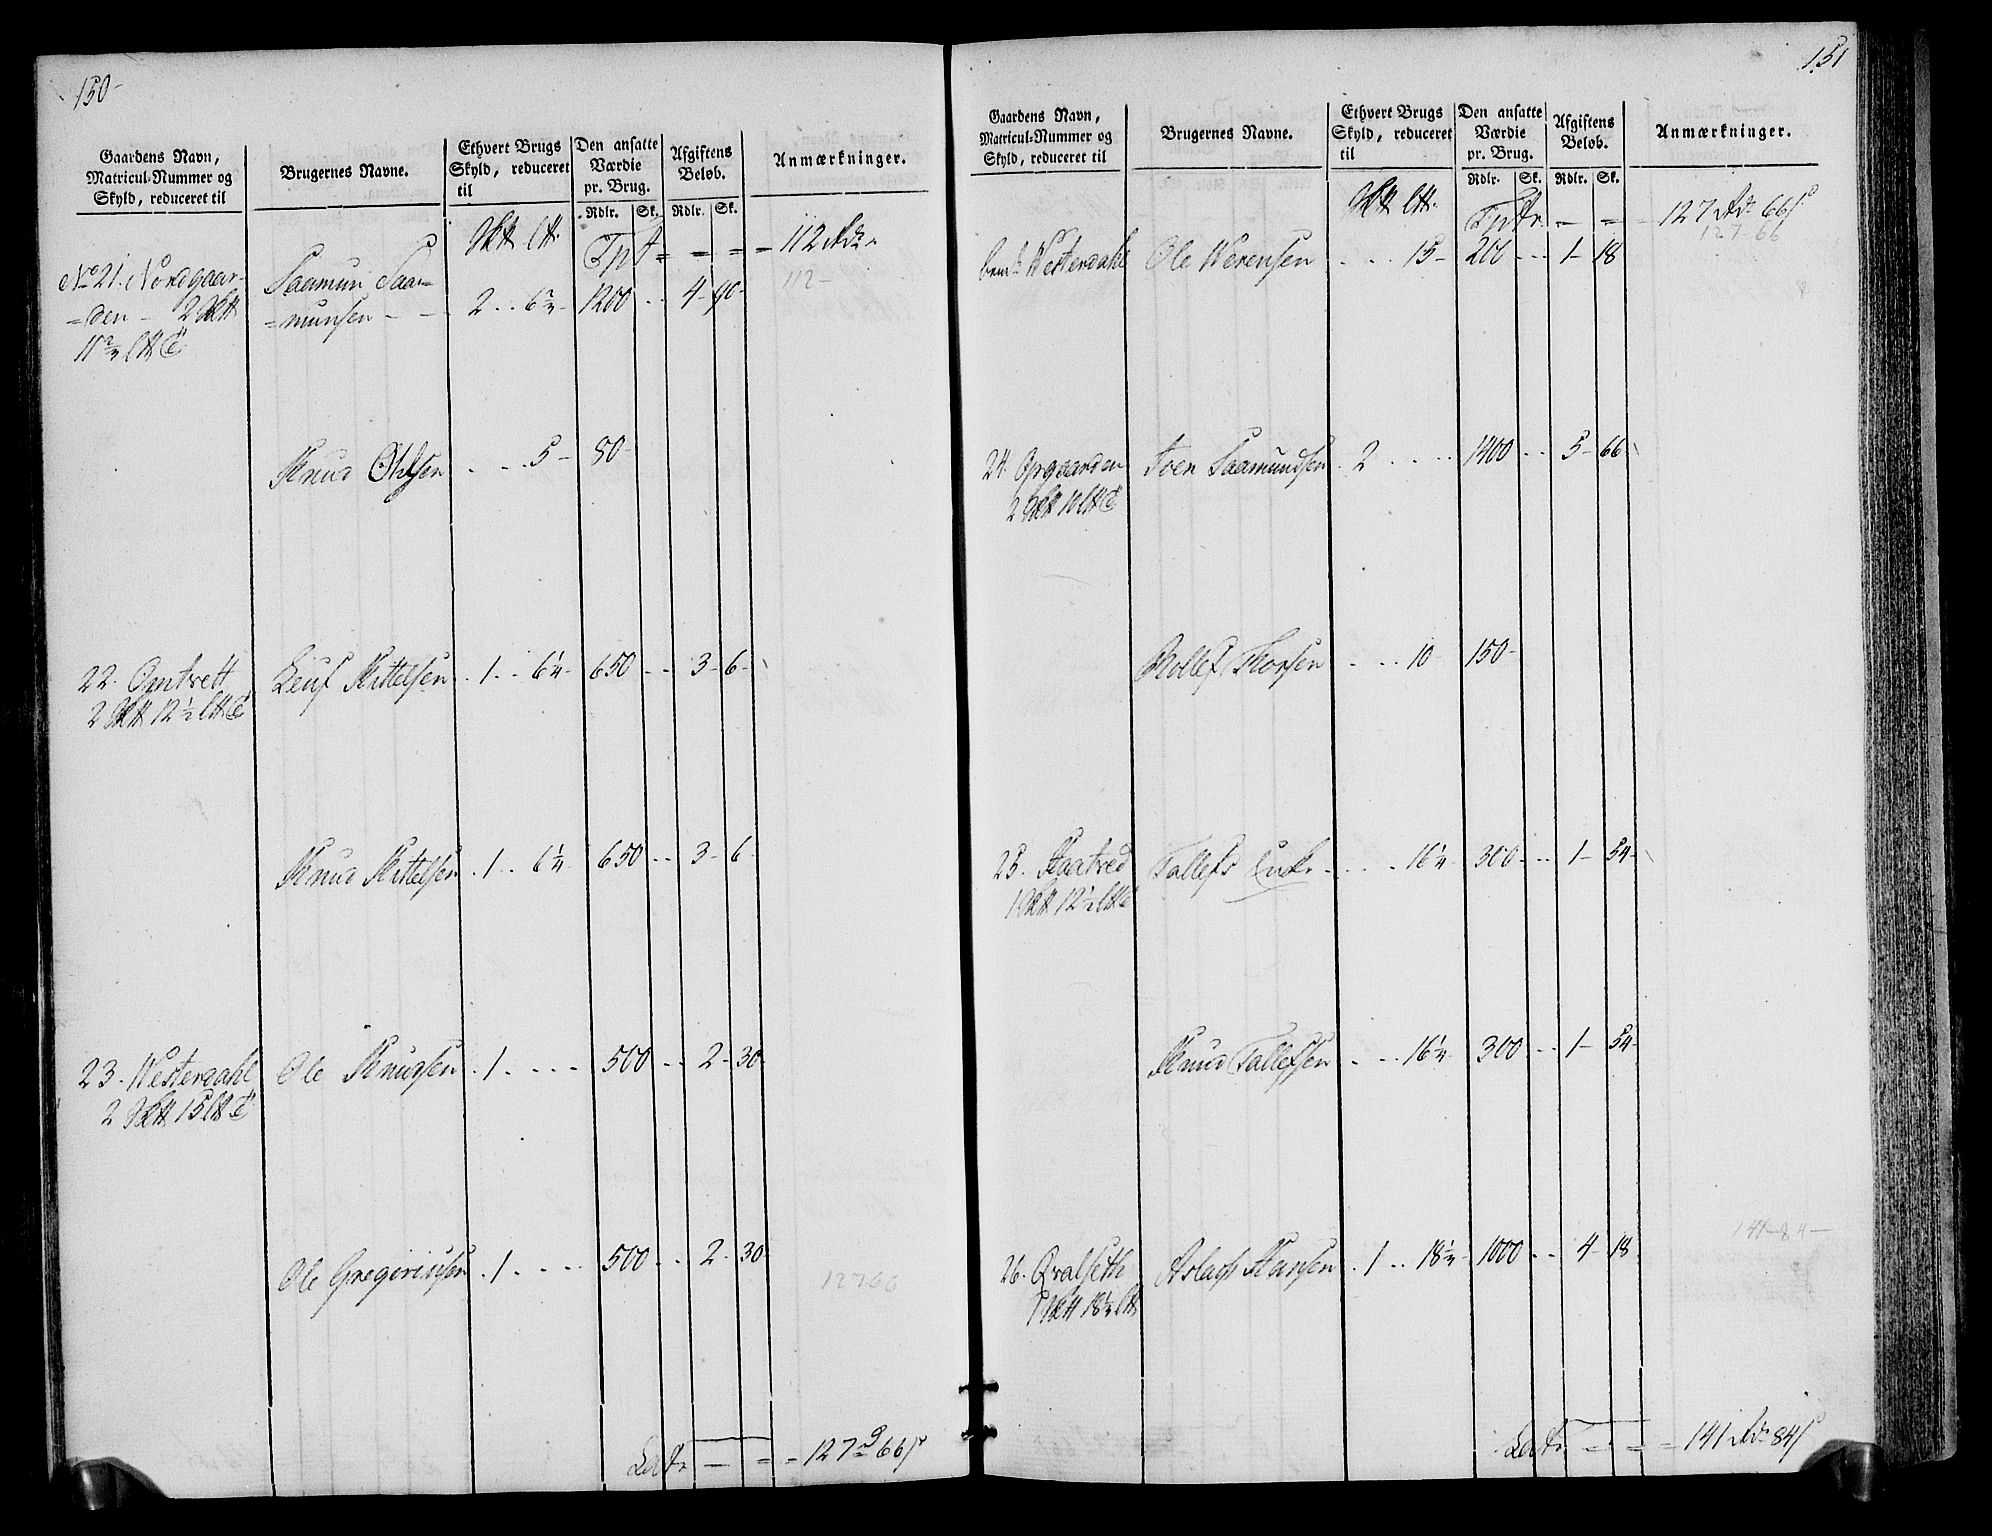 150-
Gaardens Navn,
Matricul-Nummer og
Skyld, reduceret til
Brugernes Navne.
Ethvert Brugs
Skyld, reduceret
til
Den ansatte
Værdie
pr. Brug.
Rdlr. Sk.
Afgiftens
Beløb.
Rdlr. Sk.
Anmærkninger.
= = = 112 Rdr
112-
No 21. Nordgaar-
=den - 2
Saamun Saa-
=munsen - - 2 .. 6 1200 .. 4- 90-
Knud Ohlsen . . . 5- 80-
22. Omtvett
2 12½
Leuf Kittelsen . 1 .. 6¼- 650 .. 3- 6-
Knud Kittelsen . 1 .. 6¼ 650 .. 3- 6-
23. Westerdahl
2 15
Ole Knudsen . 1 . . . . 500 .. 2- 30-
Ole Gregoriusen . 1 . . . . 500 .. 2- 30
127 66
Latr - = - 127 66
151
Gaardens Navn,
Matricul-Nummer og
Skyld, reduceret til
Brugernes Navne.
Ethvert Brugs
Skyld, reduceret
til
Den ansatte
Værdie
pr. Brug.
Rdlr. Sk.
Afgiftens
Beløb.
Rdlr. Sk.
Anmærkninger.
- = - 127 Rdr 66
127 66
Westerdahl Ole Werensen . . . 15- 200 . . . 1- 18
24. Opgaarden
2 10
Sven Saamundsen . 2 . . . . 1400 . . . 5- 66
Rollef Thorsen . . . 10 150-
25. Haatved
1 12½
Tallefs Enke . . . . 16¼ 300- . . 1- 54-
Knud Tallefsen . . . 16¼ 300 . . . 1- 54-
26. Qvalseth
1 18
Aslach Hansen . 1 .. 18 1000 . . 4- 18
141-84-
Latr = = = 141 Rdr 84